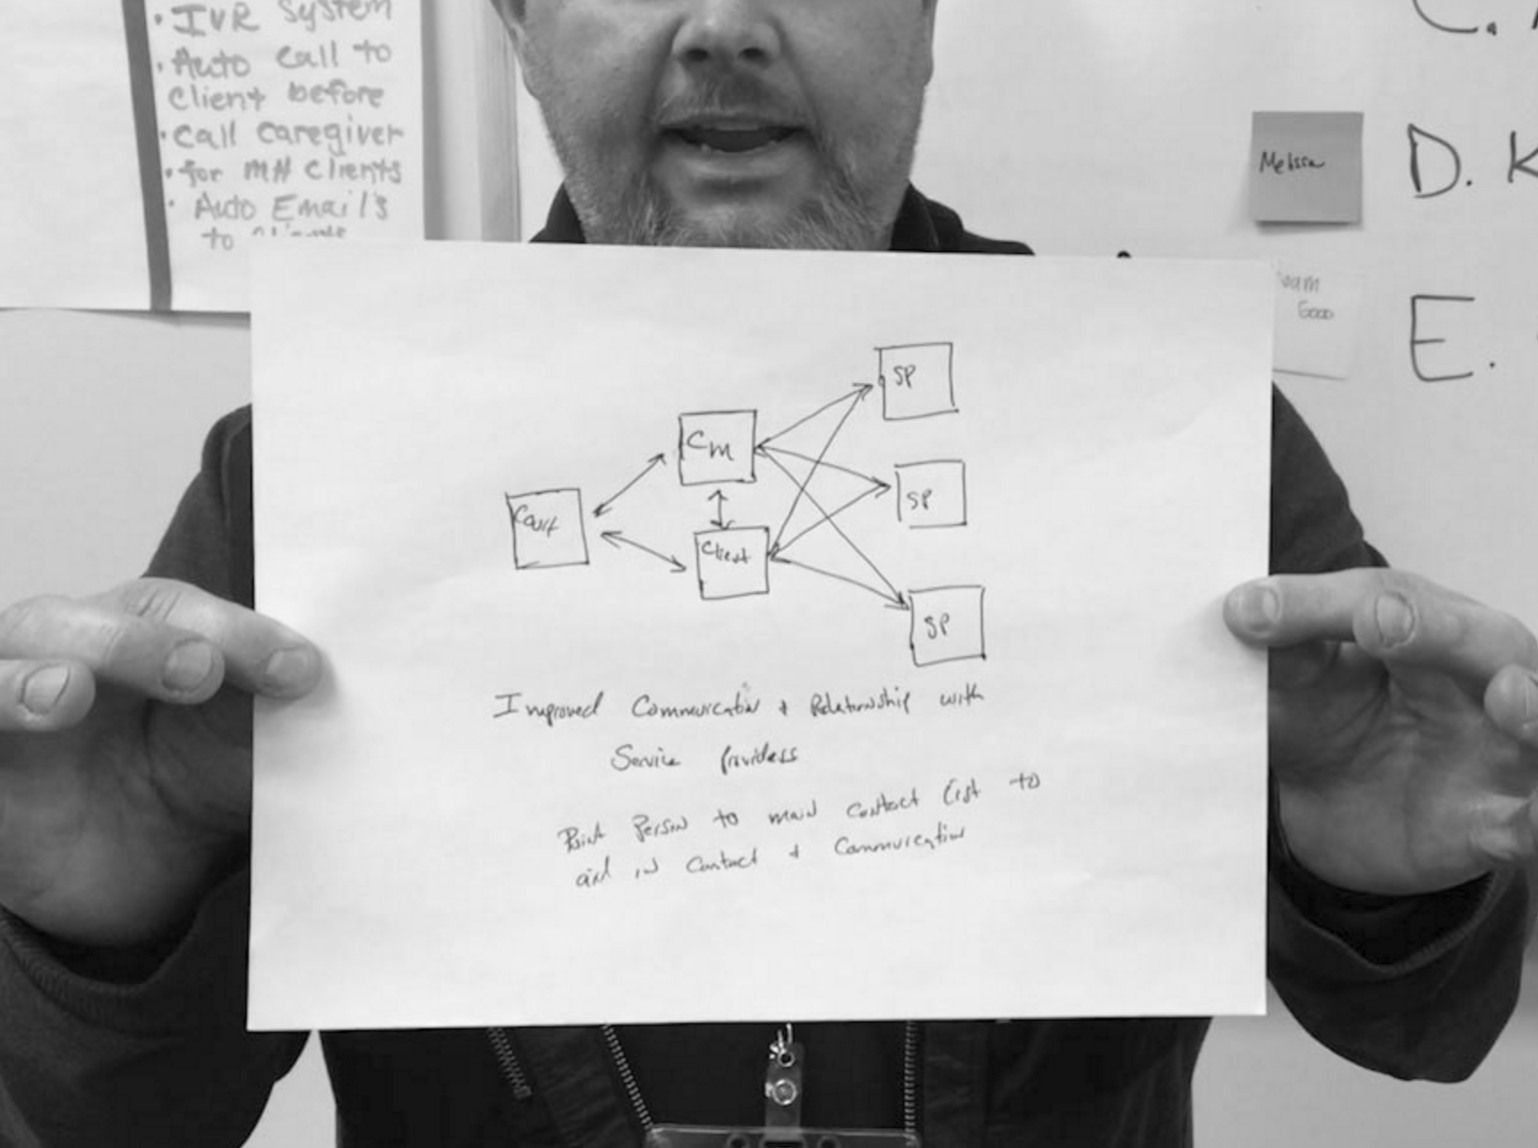 · IVR System
· Auto Call to
Client before
· Call Caregiver
· for MH Clients
· Auto Email's
to Clients
C.
Melissa
D. K
Good
E.
SP
Cm
SP
Court
Client
SP
Improved Communication & Relationship with
Service Providers
Point Person to main contact list to
aid in Contact & Communication